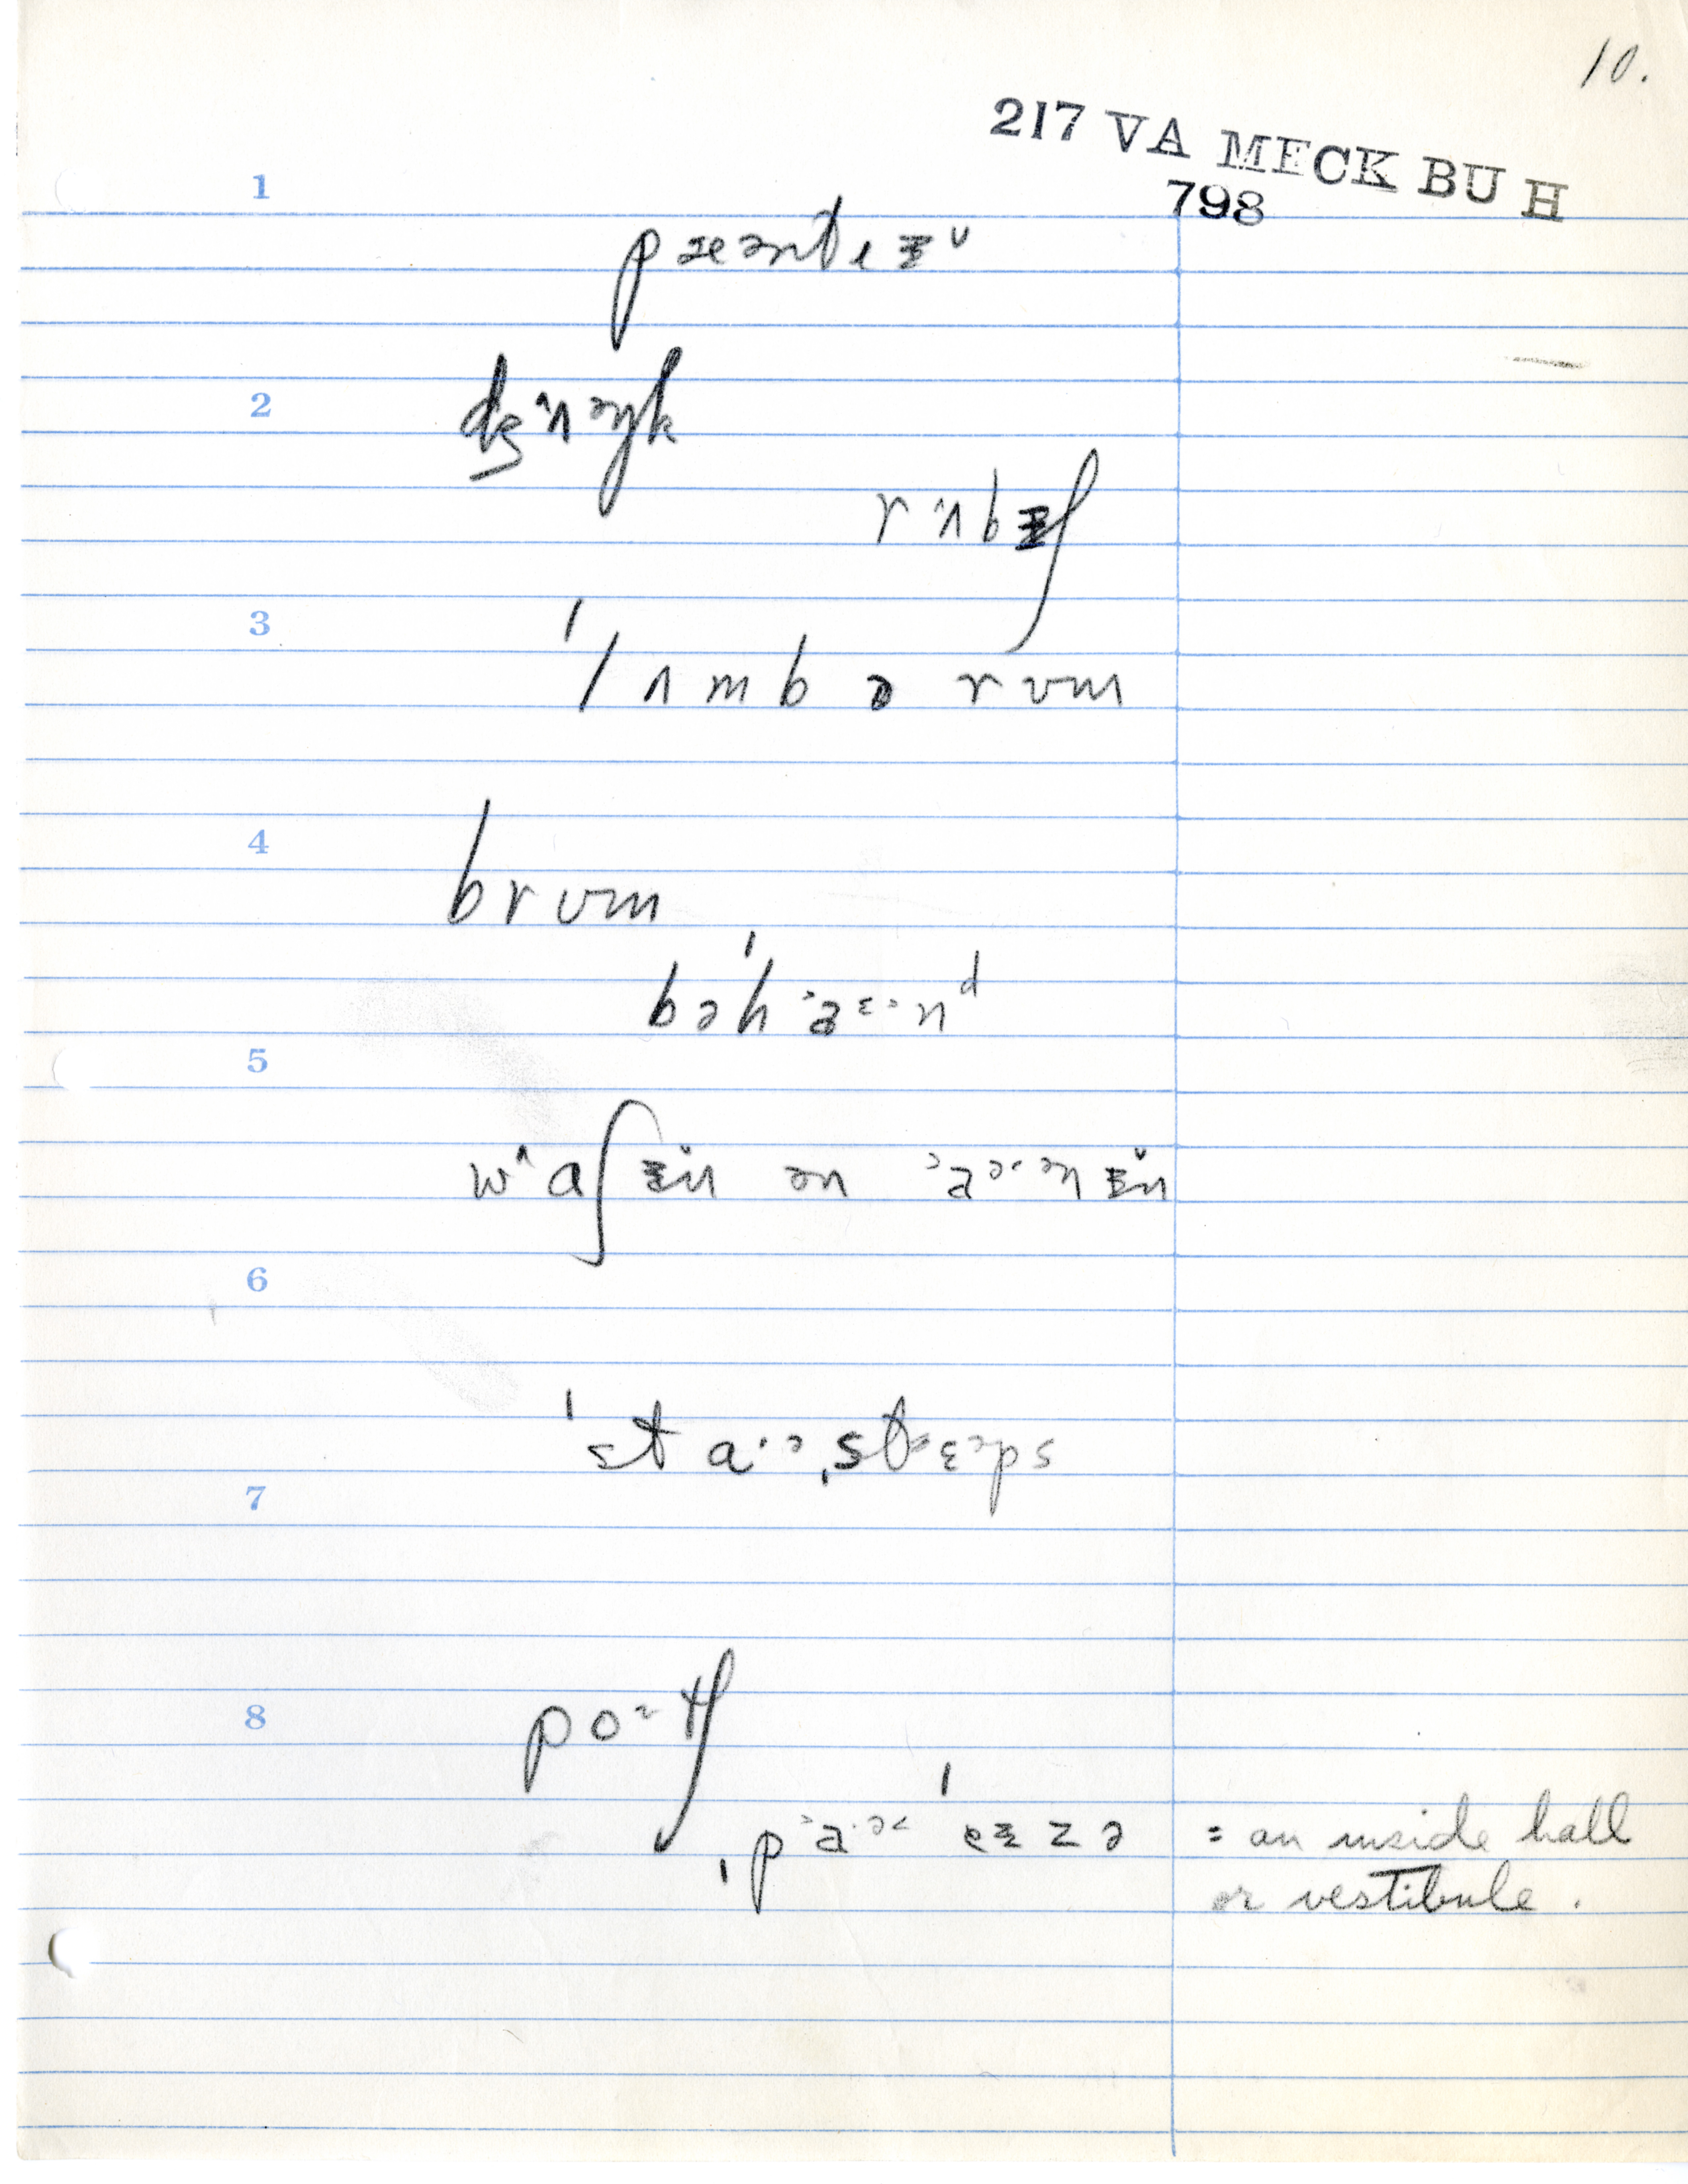 10.
217 VA MECK BU H
798
1
pæəntɨ̆
2
dʒʌəŋk
rʌbɨʃ
3
ˈlʌmbə rʊm
4
brʊm
bəˈhaɛnᵈ
5
waʃɨ̆n ən aənɨ̆n
6
ˈstaəˌstɛəps
7
8
poətʃ
ˌpaəˈeɨzə = an inside hall
or vestibule.